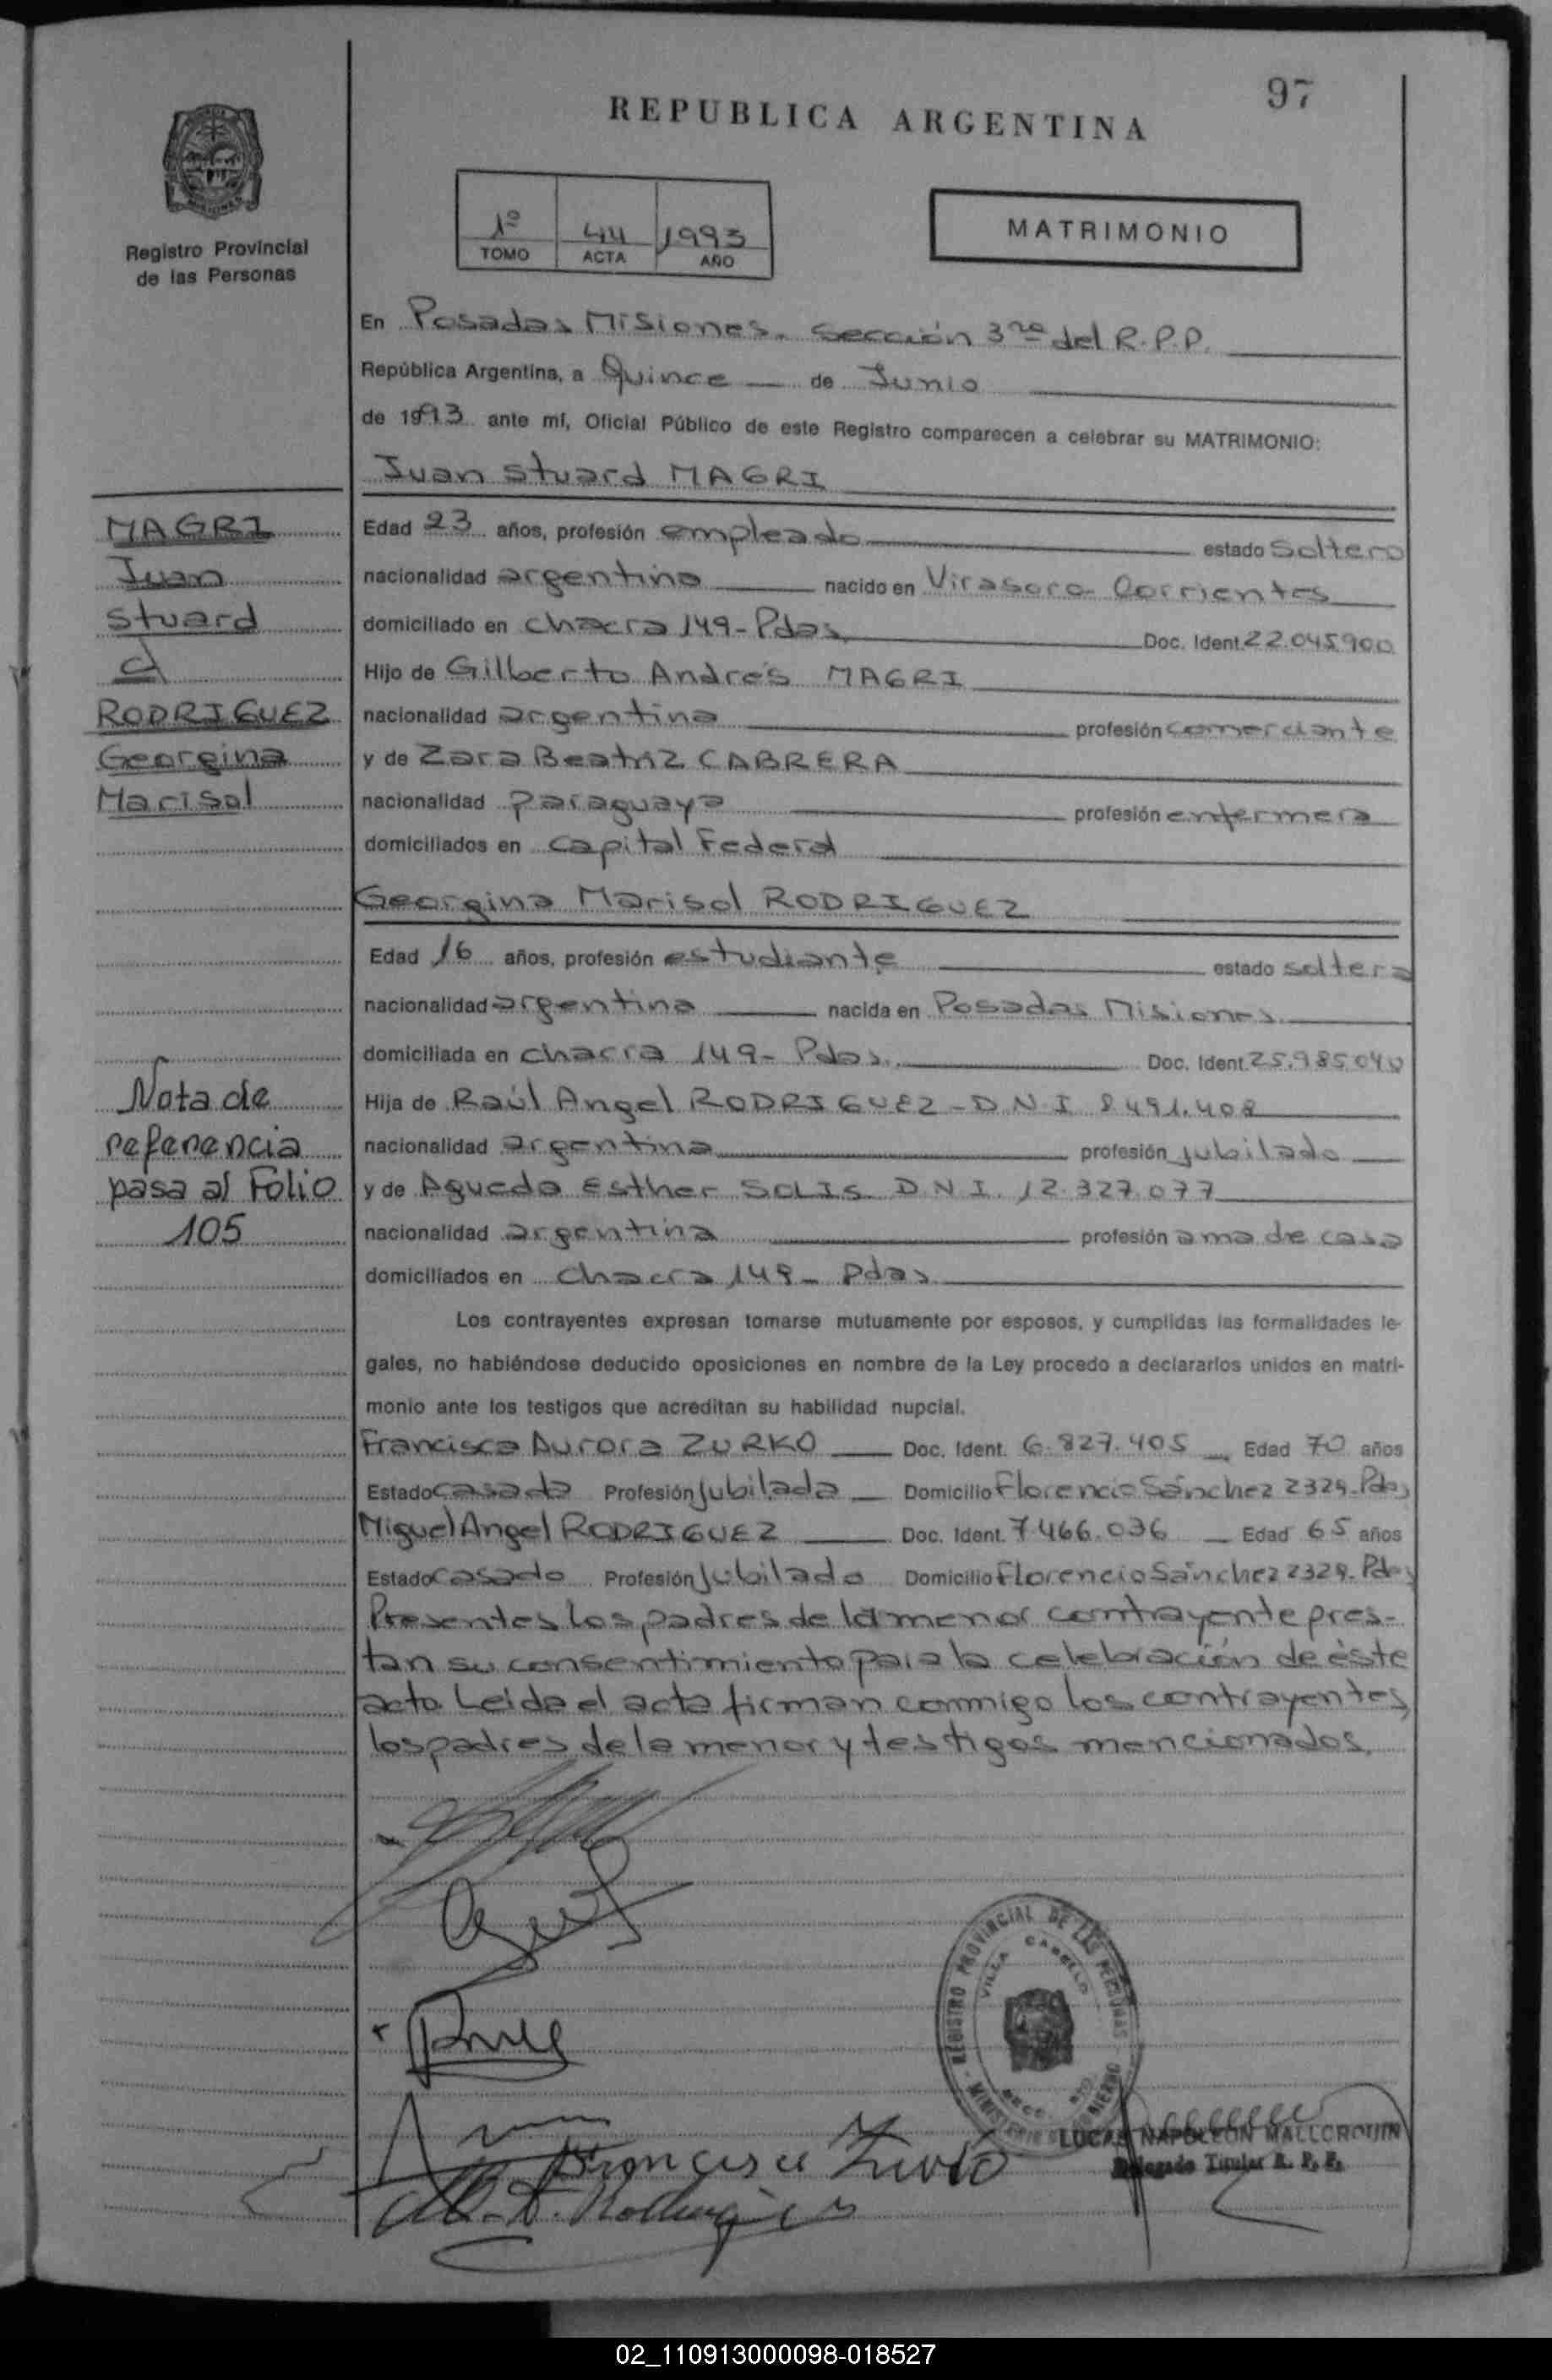 97
REPUBLICA ARGENTINA
Registro Provincial
de las Personas
1º 44 1993
TOMO ACTA AÑO
MATRIMONIO
En Posadas Misiones. Sección 3ra del R.P.P.
República Argentina, a Quince de Junio
de 1993 ante mí, Oficial Público de este Registro comparecen a celebrar su MATRIMONIO:
Juan Stuard MAGRI
MAGRI
Juan
Stuard
c/
RODRIGUEZ
Georgina
Marisol
Edad 23 años, profesión empleado estado Soltero
nacionalidad argentina nacido en Virasoro Corrientes
domiciliado en chacra 149-Pdas Doc. Ident. 22.045.900
Hijo de Gilberto Andrés MAGRI
nacionalidad argentina profesión comerciante
y de Zara Beatriz CABRERA
nacionalidad paraguaya profesión enfermera
domiciliados en Capital Federal
Georgina Marisol RODRIGUEZ
Edad 16 años, profesión estudiante estado soltera
nacionalidad argentina nacida en Posadas Misiones
domiciliada en chacra 149- Pdas. Doc. Ident. 25.985.040
Nota de
referencia
pasa al Folio
105
Hija de Raúl Angel RODRIGUEZ-D.N.I 8491.408
nacionalidad argentina profesión jubilado
y de Agueda Esther SOLIS D.N.I. 12.327.077
nacionalidad argentina profesión ama de casa
domiciliados en chacra 149- Pdas
Los contrayentes expresan tomarse mutuamente por esposos, y cumplidas las formalidades le-
gales, no habiéndose deducido oposiciones en nombre de la Ley procedo a declararlos unidos en matri-
monio ante los testigos que acreditan su habilidad nupcial.
Francisca Aurora ZURKO Doc. Ident. 6.827.405 Edad 70 años
Estado casada Profesión Jubilada Domicilio Florencio Sánchez 2329-Pdas
Miguel Angel RODRIGUEZ Doc. Ident. 7.466.036 Edad 65 años
Estado casado Profesión Jubilado Domicilio Florencio Sánchez 2329-Pdas
Presentes los padres de la menor contrayente pres-
tan su consentimiento para la celebración de éste
acto. Leida el acta firman conmigo los contrayentes,
los padres de la menor y testigos mencionados.
REGISTRO PROVINCIAL DE LAS PERSONAS
VILLA CABELLO
MINISTERIO DE GOBIERNO
Francisca Zurko
M. A. Rodriguez
LUCAS NAPOLEON MALLORQUIN
Delegado Titular R. P. P.
02_110913000098-018527